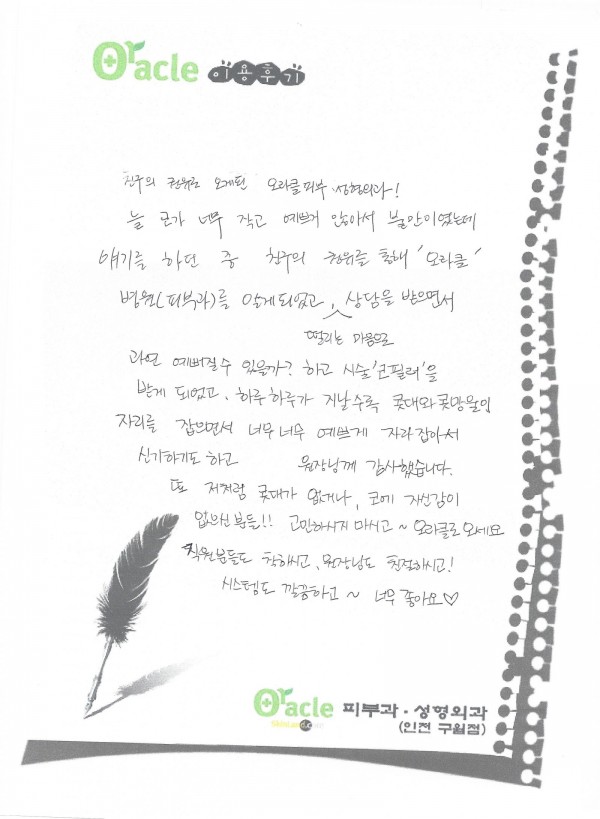 Oracle 이용후기
친구의 권유로 오게된 오라클피부.성형외과!
늘 코가 너무 작고 예쁘지 않아서 불만이였는데
얘기를 하던 중 친구의 권유를 통해 '오라클'
병원(피부과)를 알게되었고, 상담을 받으면서
떨리는 마음으로
과연 예뻐질수 있을까? 하고 시술'코필러'을
받게 되었고, 하루하루가 지날수록 콧대와 콧망울의
자리를 잡으면서 너무너무 예쁘게 자리잡아서
신기하기도 하고 원장님께 감사했습니다.
또 저처럼 콧대가 없거나, 코에 자신감이
없으신분들!! 고민하시지 마시고 ~ 오라클로 오세요
직원분들도 착하시고, 원장님도 친절하시고!
시스템도 깔끔하고 ~ 너무 좋아요♡
Oracle 피부과·성형외과
(인천 구월점)